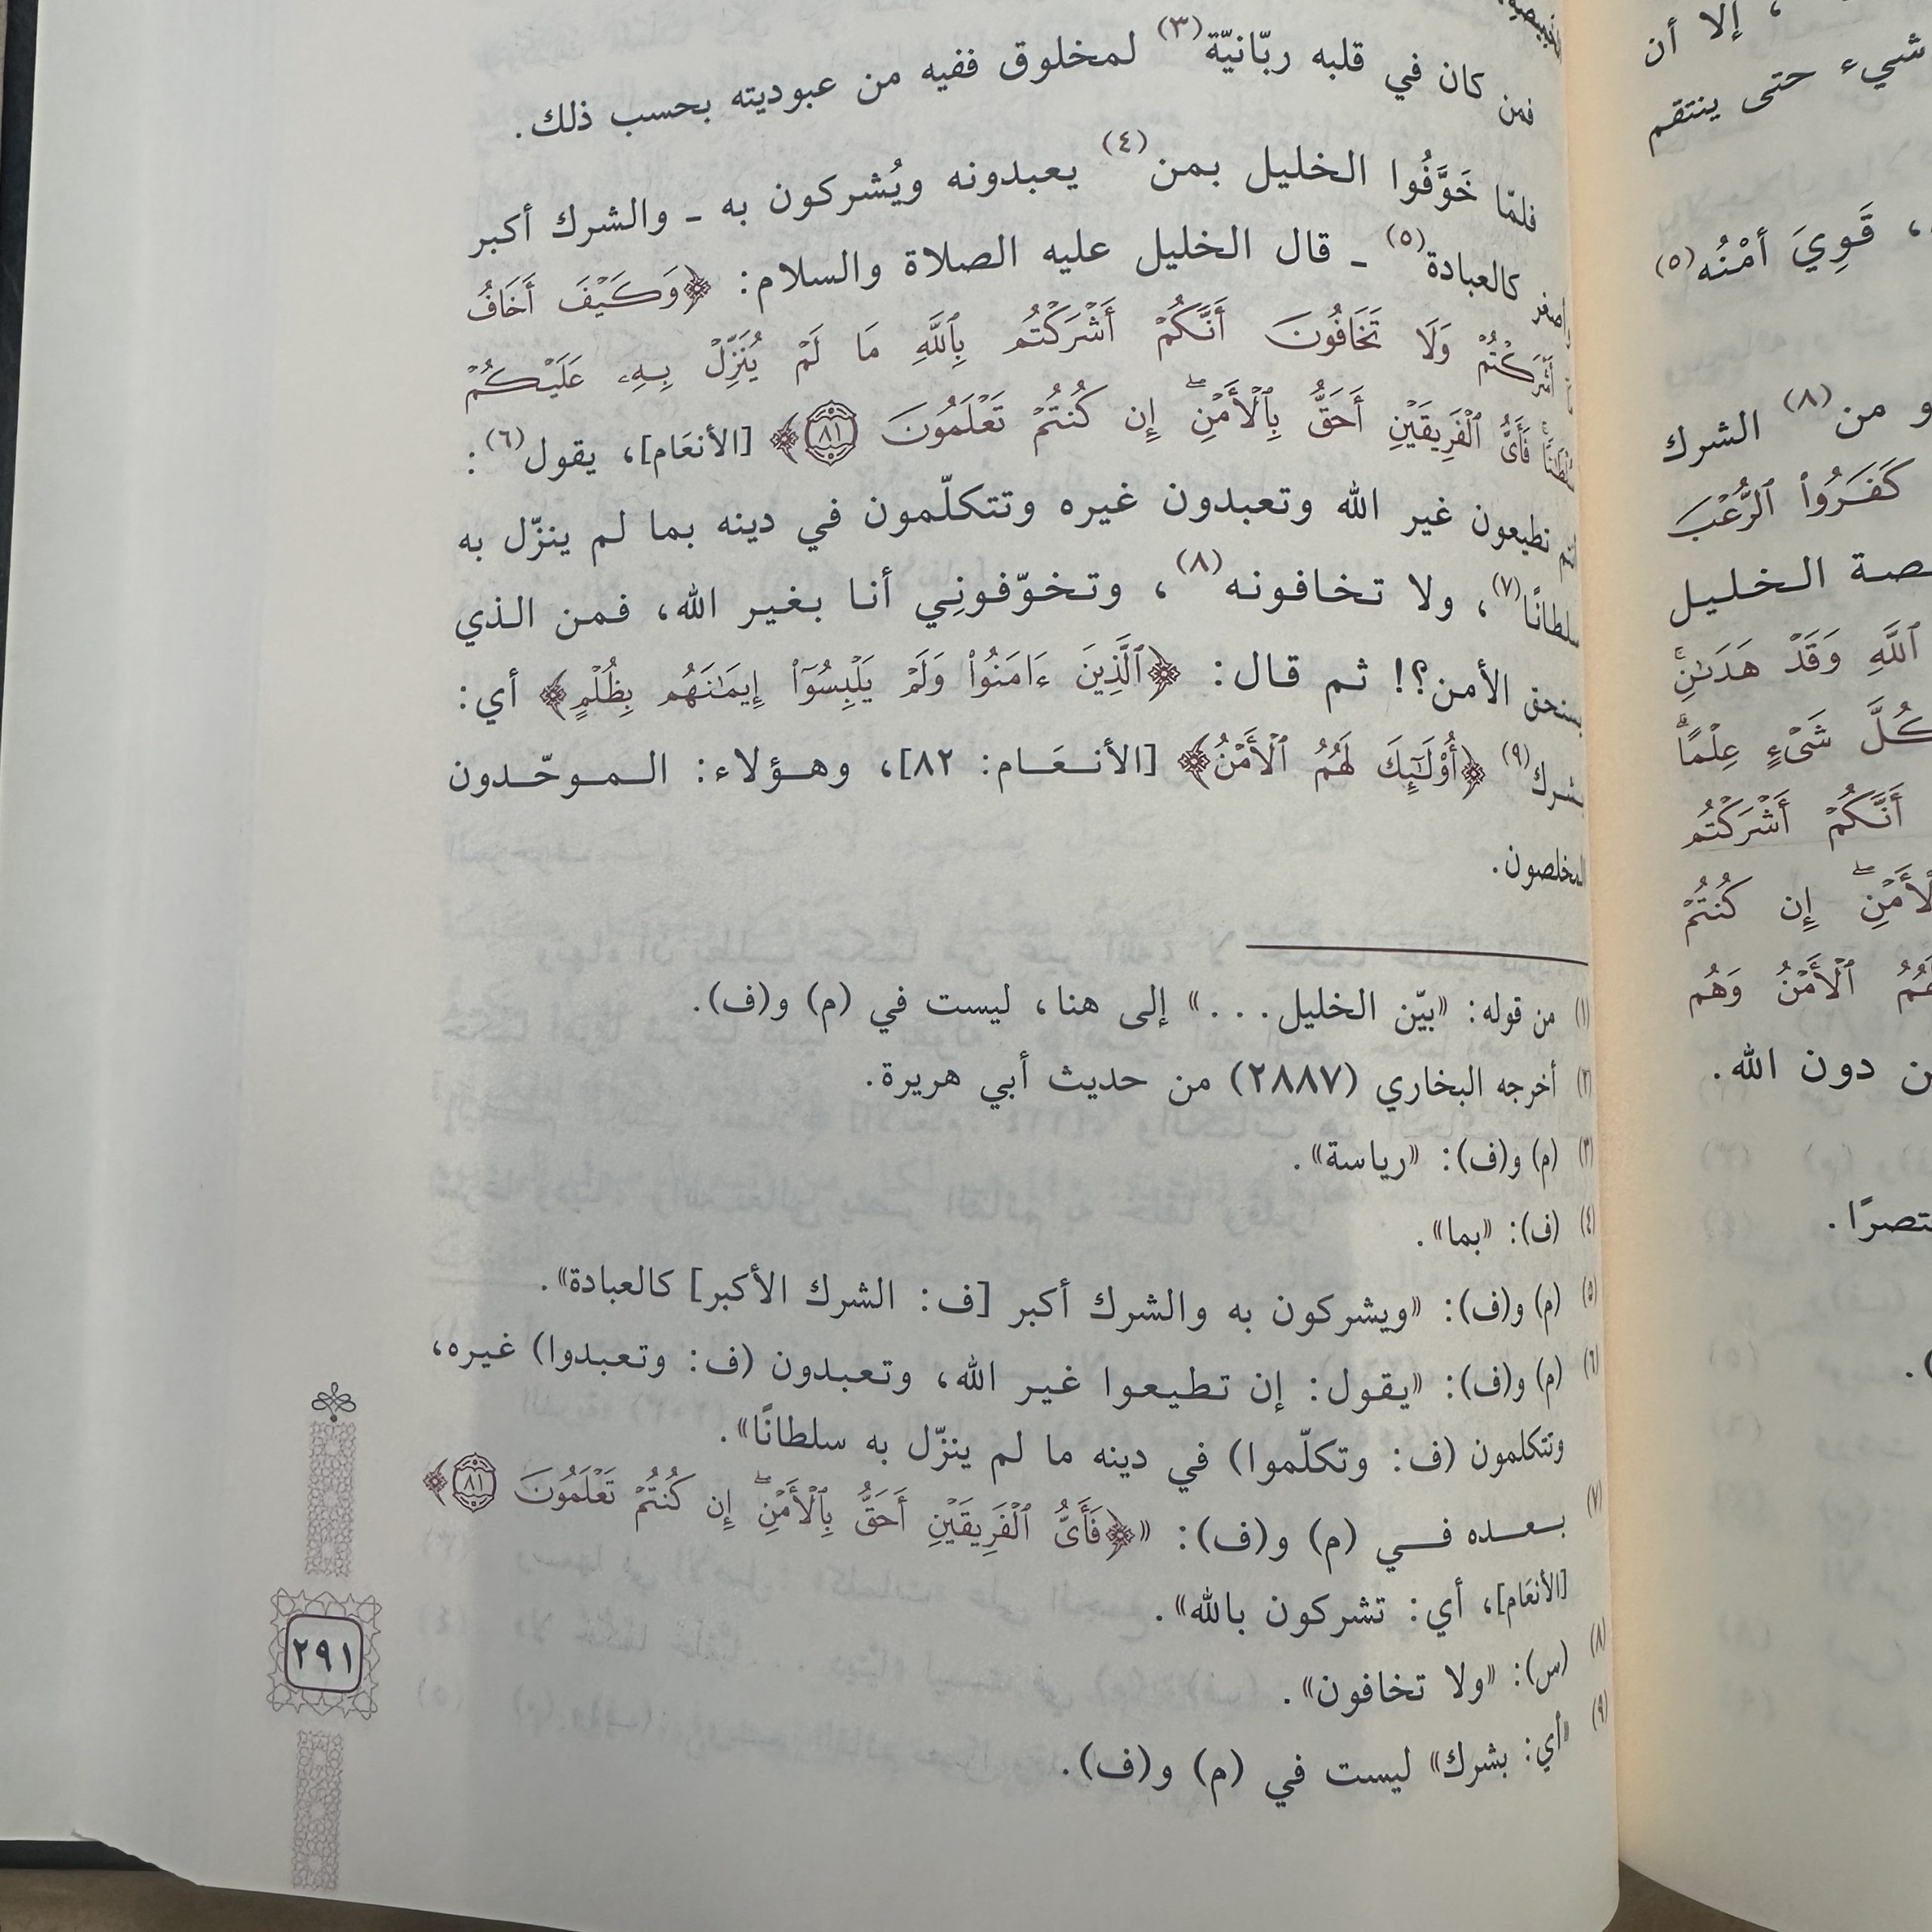 فمن كان في قلبه ربّانيّة(٣) لمخلوق ففيه من عبوديته بحسب ذلك.
فلمّا خَوَّفُوا الخليل بمن(٤) يعبدونه ويُشركون به ـ والشرك أكبر
وأصغر كالعبادة(٥) ـ قال الخليل عليه الصلاة والسلام: ﴿وَكَيْفَ أَخَافُ
أَشْرَكْتُمْ وَلَا تَخَافُونَ أَنَّكُمْ أَشْرَكْتُم بِٱللَّهِ مَا لَمْ يُنَزِّلْ بِهِۦ عَلَيْكُمْ
سُلْطَٰنًا ۚ فَأَىُّ ٱلْفَرِيقَيْنِ أَحَقُّ بِٱلْأَمْنِ ۖ إِن كُنتُمْ تَعْلَمُونَ ٨١﴾ [الأنعَام]، يقول(٦):
تطيعون غير الله وتعبدون غيره وتتكلّمون في دينه بما لم ينزّل به
سلطانًا(٧)، ولا تخافونه(٨)، وتخوّفونِي أنا بغير الله، فمن الذي
يستحق الأمن؟! ثم قال: ﴿ٱلَّذِينَ ءَامَنُوا۟ وَلَمْ يَلْبِسُوٓا۟ إِيمَٰنَهُم بِظُلْمٍ﴾ أي:
بشرك(٩) ﴿أُو۟لَٰٓئِكَ لَهُمُ ٱلْأَمْنُ﴾ [الأنعَام: ٨٢]، وهؤلاء: الموحّدون
المخلصون.
(١) من قوله: «بيّن الخليل...» إلى هنا، ليست في (م) و(ف).
(٢) أخرجه البخاري (٢٨٨٧) من حديث أبي هريرة.
(٣) (م) و(ف): «رياسة».
(٤) (ف): «بما».
(٥) (م) و(ف): «ويشركون به والشرك أكبر [ف: الشرك الأكبر] كالعبادة».
(٦) (م) و(ف): «يقول: إن تطيعوا غير الله، وتعبدون (ف: وتعبدوا) غيره،
وتتكلمون (ف: وتكلّموا) في دينه ما لم ينزّل به سلطانًا».
(٧) بعده في (م) و(ف): «﴿فَأَىُّ ٱلْفَرِيقَيْنِ أَحَقُّ بِٱلْأَمْنِ ۖ إِن كُنتُمْ تَعْلَمُونَ ٨١﴾
[الأنعَام]، أي: تشركون بالله».
(٨) (س): «ولا تخافون».
(٩) «أي: بشرك» ليست في (م) و(ف).
٢٩١
، إلا أن
شيء حتى ينتقم
، قَوِيَ أمْنُه(٥)
و من(٨) الشرك
كَفَرُوا۟ ٱلرُّعْبَ
الخليل
ٱللَّهِ وَقَدْ هَدَىٰنِ ۚ
كُلَّ شَىْءٍ عِلْمًا ۗ
أَنَّكُمْ أَشْرَكْتُم
إِن كُنتُمْ
ٱلْأَمْنُ وَهُم
دون الله.